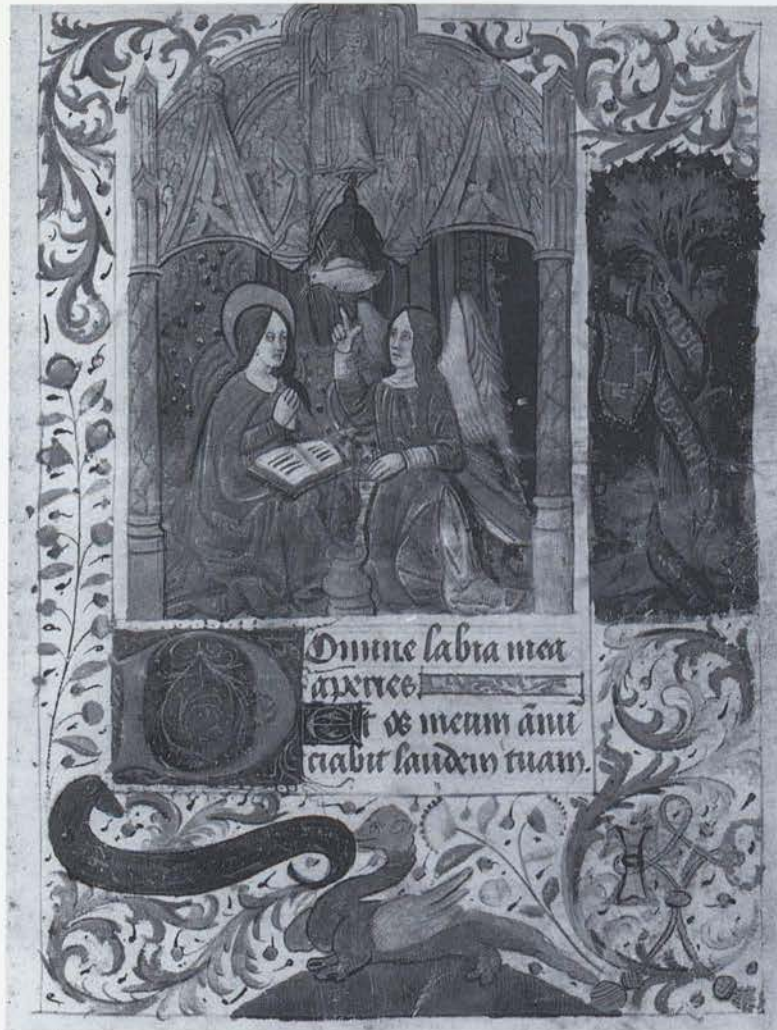 Domine labia mea
aperies
Et os meum ānu
ciabit laudem tuam.